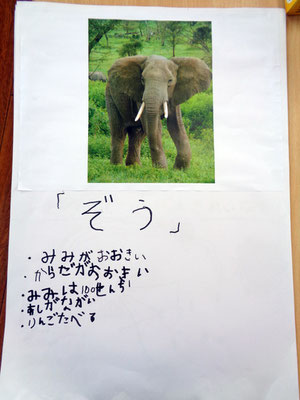 「ぞう」
・みみがおおきい
・からだがおおきい
・みみは100せんち
・あしがながい
・りんごたべる